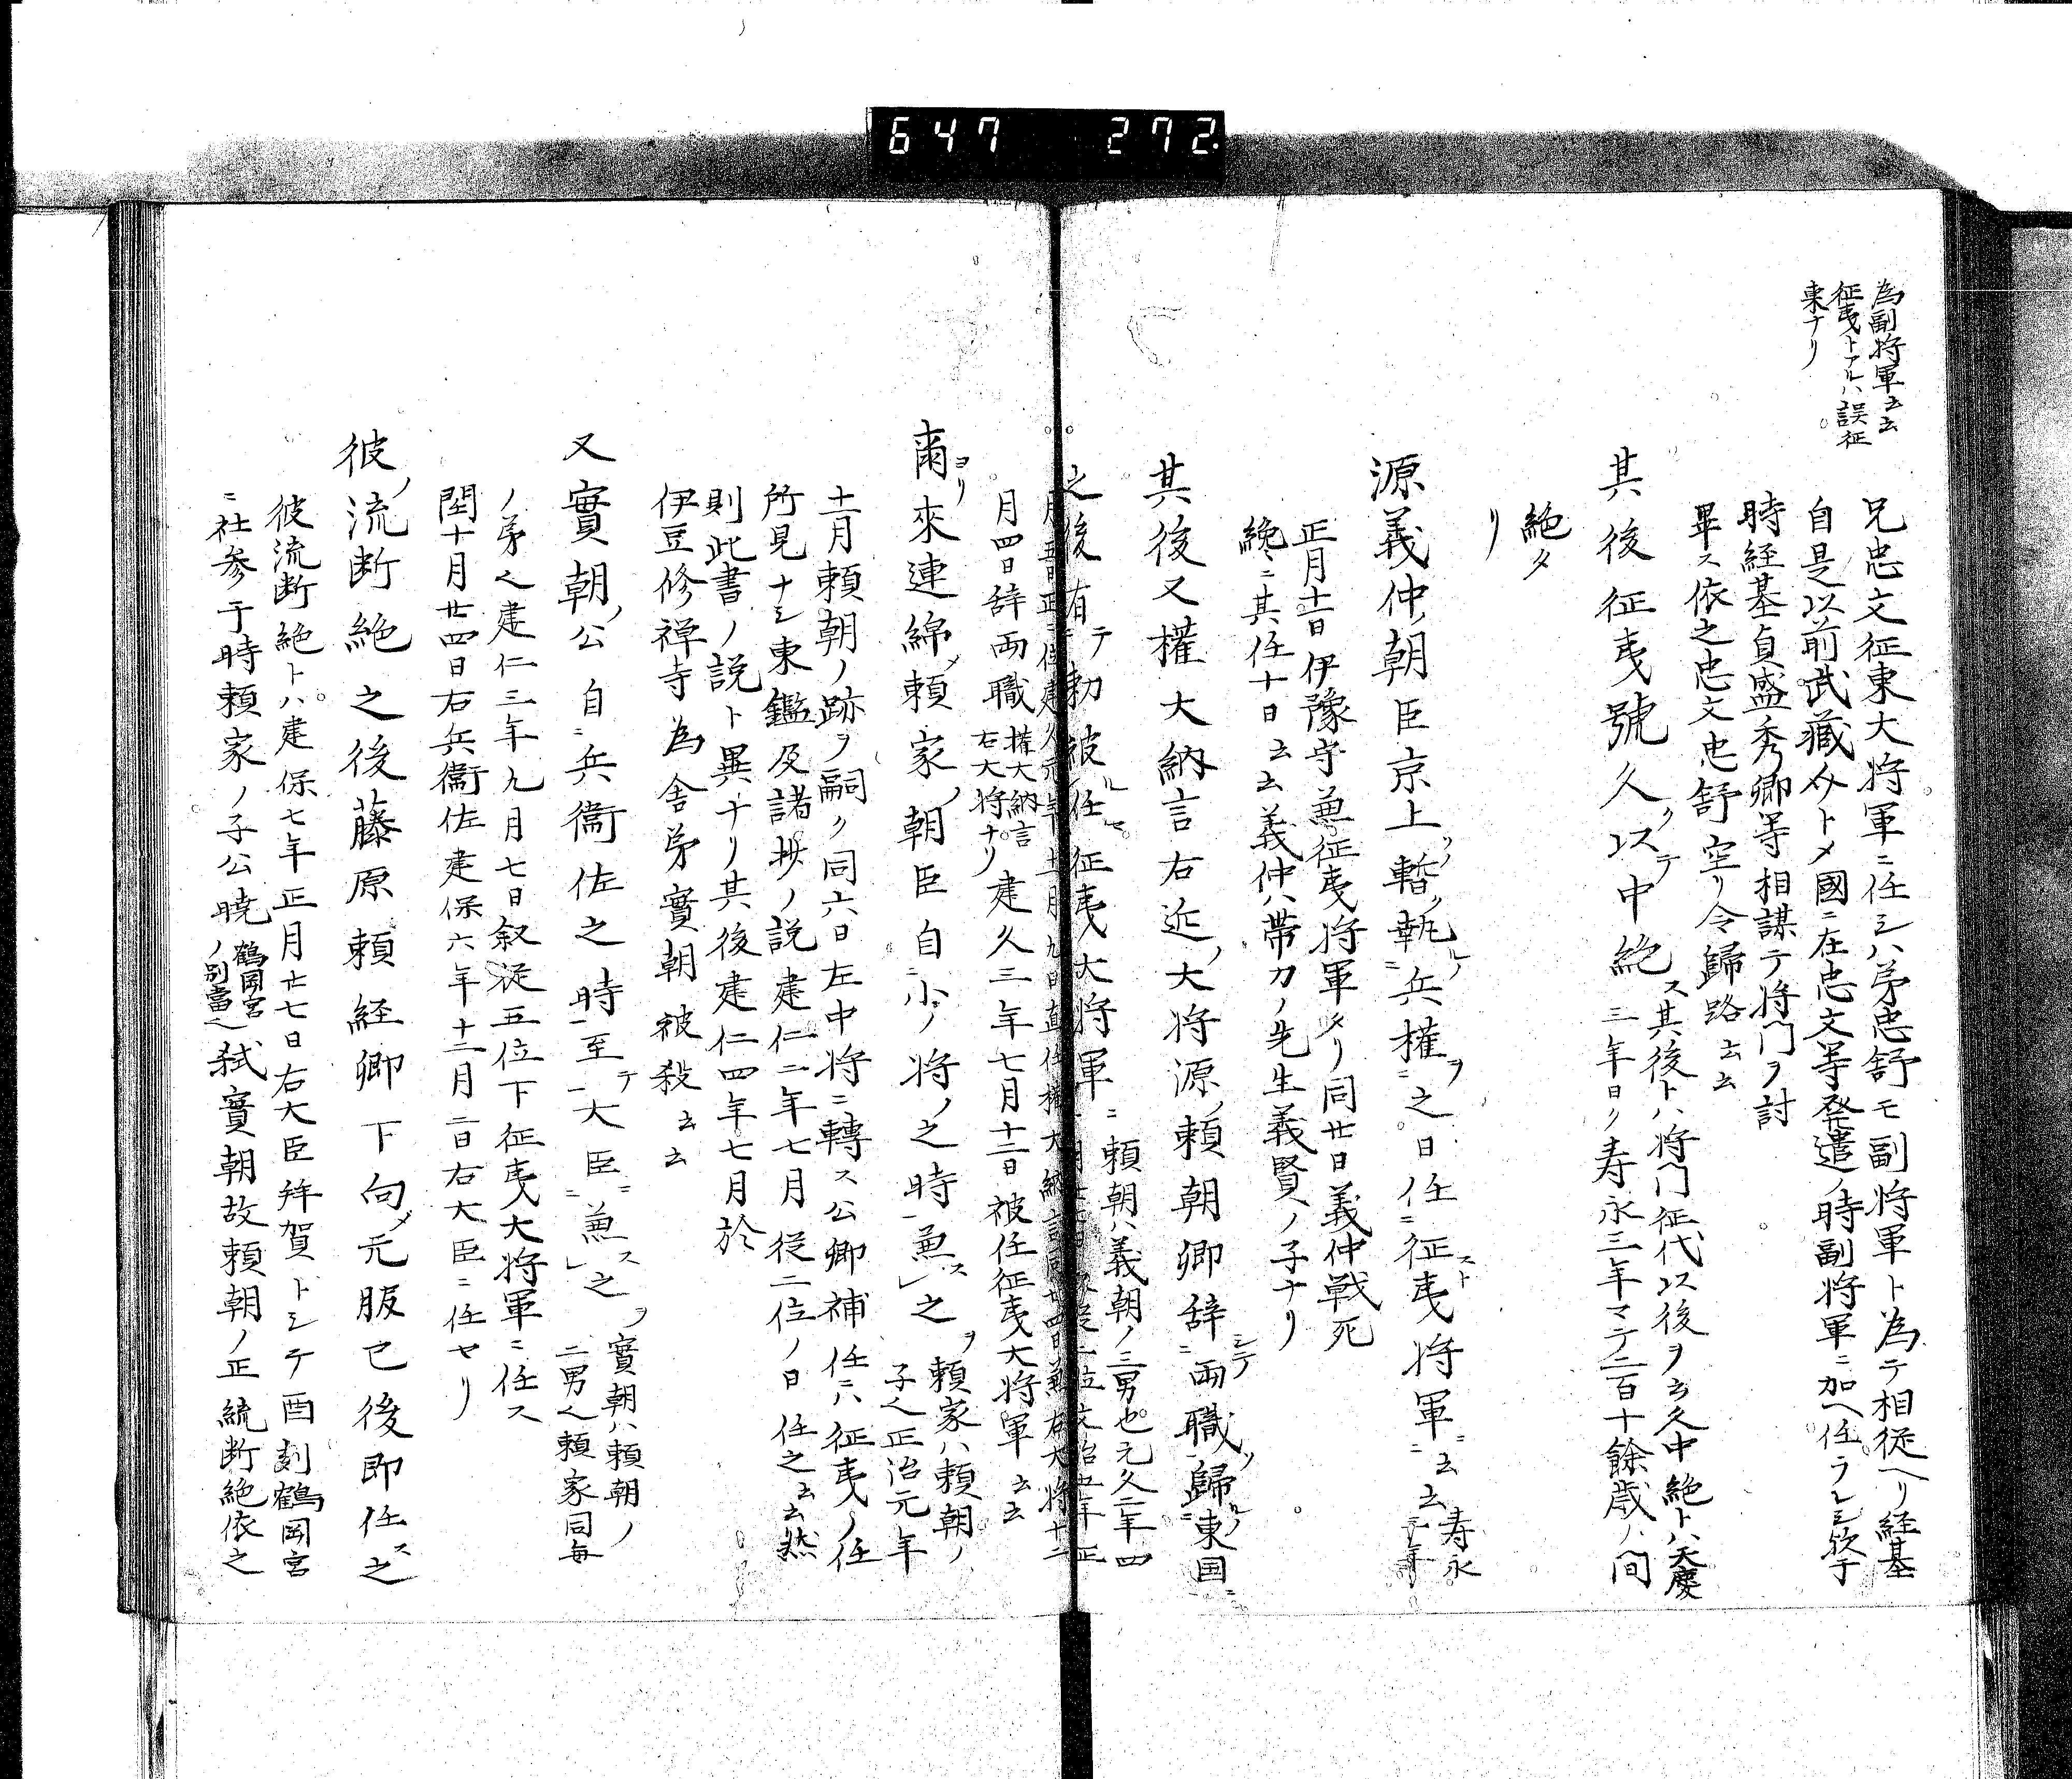 647 272
為副将軍云云
征夷トアルハ誤征
東ナリ
兄忠文征東大将軍ニ任シハ弟忠舒モ副将軍ト為テ相従ヘリ経基
自是以前武蔵介トメ國ニ在忠文等発遣ノ時副将軍ニ加ヘ任ラレシ歟于
時経基貞盛秀卿等相謀テ将門ヲ討
畢ス依之忠文忠舒空リ令歸路云云
其後征夷號久クシテ中絶
ス其後トハ将門征代以後ヲ云久中絶トハ天慶
三年ヨリ寿永三年マテ二百十餘歳ノ間
絶タ
リ
源義仲ノ朝臣京上ソノ暫ク執ルノ兵権ヲ之日任スト征夷将軍ニ云云
寿永
三年
正月十一日伊豫守兼征夷将軍タリ同廿日義仲戦死
纔ニ其任十日云云義仲ハ帯刀ノ先生義賢ノ子ナリ
其後又権大納言右近ノ大将源ノ頼朝卿辞シテ両職ヲ歸ルノ東国ニ
之後有テ勅被任征夷大将軍ニ
頼朝ハ義朝ノ三男也元久二年四
月四日辞両職
権大納言
右大将ナリ
建久三年七月十二日被任征夷大将軍云云
爾ヨリ來連綿メ頼家ノ朝臣自ニ小ノ将ノ之時兼ス之ヲ
頼家ハ頼朝ノ
子也正治元年
十一月頼朝ノ跡ヲ嗣ク同六日左中将ニ轉ス公卿補任ニハ征夷ノ任
所見ナシ東鑑及諸抄ノ説建仁二年七月従二位ノ日任之云云然
則此書ノ説ト異ナリ其後建仁四年七月於
伊豆修禅寺為舎弟實朝被殺云云
又實朝ノ公自ニ兵衞佐之時至テ大臣ニ兼ス之ヲ
實朝ハ頼朝ノ
二男也頼家同毎
ノ弟也建仁三年九月七日叙従五位下征夷大将軍ニ任ス
閏十月廿四日右兵衞佐建保六年十二月二日右大臣ニ任セリ
彼ノ流断絶之後藤原頼経卿下向メ元服已後即任ス之
彼流断絶トハ建保七年正月廿七日右大臣拜賀トシテ酉刻鶴岡宮
ニ社参于時頼家ノ子公暁
鶴岡宮
ノ別當也
弑實朝故頼朝ノ正統断絶依之